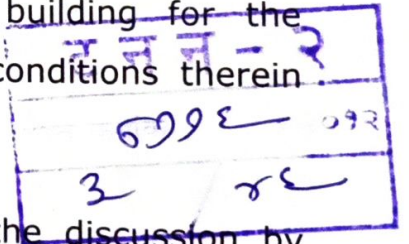 building for the
ट न न - २
conditions therein
३ ४६
the discussion by